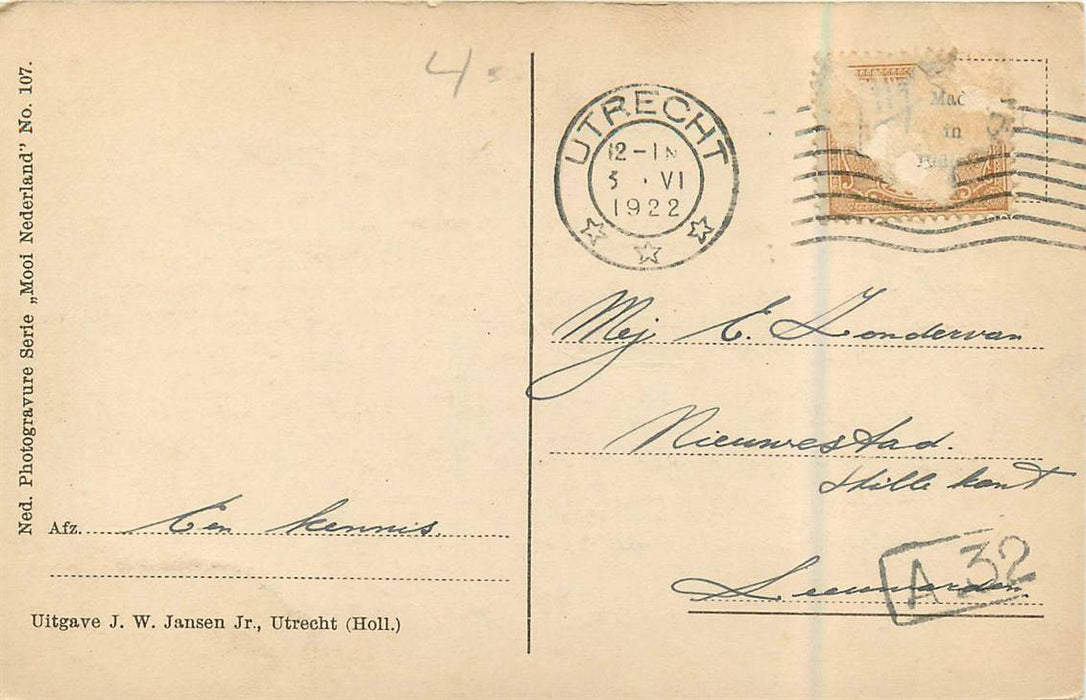 Ned. Photogravure Serie „Mooi Nederland” No. 107.
4
UTRECHT
12-1N
5 · VI
1922
Mad
in
Mej E. Zondervan
Nieuwestad.
stille kant
Leeuwarden.
A 32
Afz. Een kennis.
Uitgave J. W. Jansen Jr., Utrecht (Holl.)